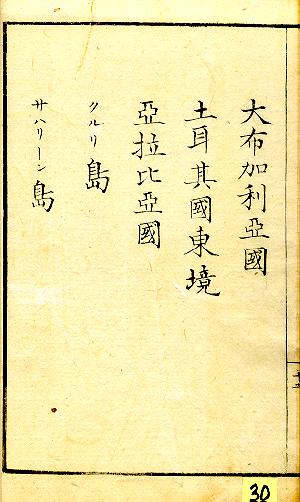 大布加利亞國
土耳其國東境
亞拉比亞國
クルリ島
サハリーン島
30